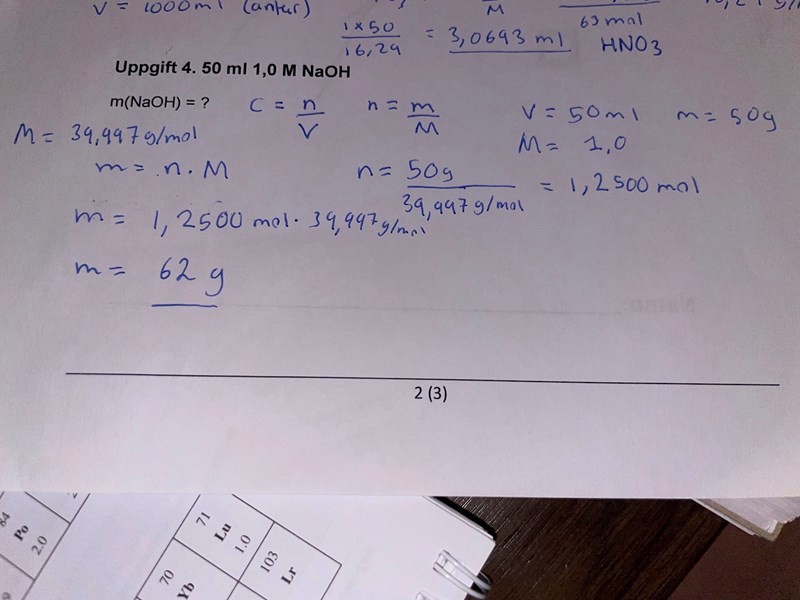 V = 1000 ml (antar)
M
63 mol
1x50
16,29
= 3,0693 ml
HNO3
Uppgift 4. 50 ml 1,0 M NaOH
m(NaOH) = ? C = n/V n = m/M V = 50 ml m = 50g
M = 39,997 g/mol M = 1,0
m = n. M n = 50g / 39,997 g/mol = 1,2500 mol
m = 1,2500 mol · 39,997 g/mol
m = 62 g
2 (3)
84
Po
2.0
71
Lu
1.0
70
Yb
103
Lr